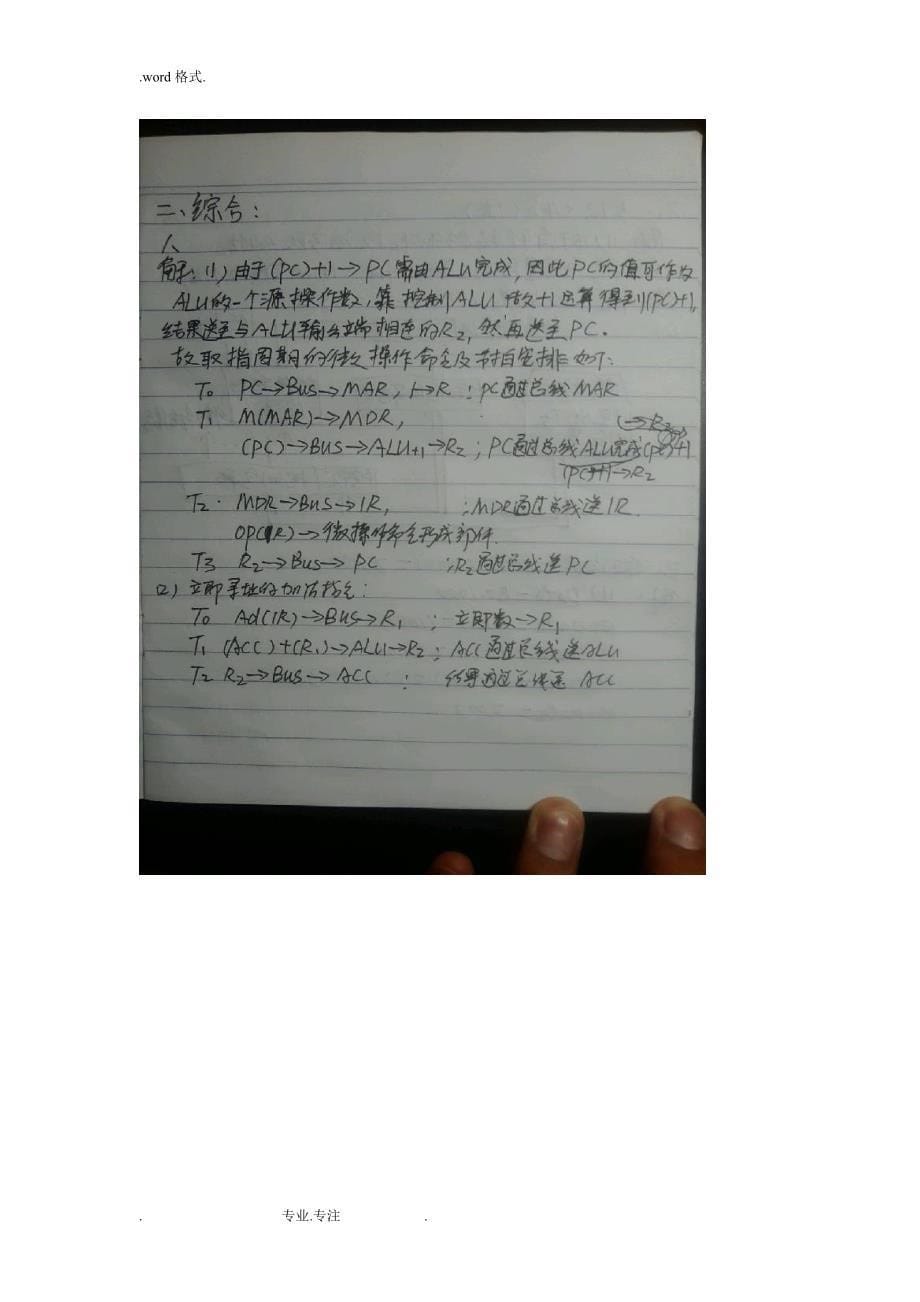 .word 格式.
二、综合：
1、
解：(1) 由于(PC)+1→PC需由ALU完成，因此PC的值可作为
ALU的一个源操作数，靠控制ALU做+1运算得到(PC)+1，
结果送至与ALU输出端相连的R2，然后再送至PC。
故取指周期的微操作命令及节拍安排如下：
T0 PC→Bus→MAR，1→R ；PC通过总线MAR
T1 M(MAR)→MDR，
(PC)→BUS→ALU+1→R2；PC通过总线ALU完成(PC)+1
(PC)+1→R2
T2 MDR→Bus→IR， ；MDR通过总线送IR
OP(IR)→微操作命令形成部件.
T3 R2→Bus→PC ；R2通过总线送PC
(2) 立即寻址的加法指令：
T0 Ad(IR)→Bus→R1 ；立即数→R1
T1 (ACC)+(R1)→ALU→R2；ACC通过总线送ALU
T2 R2→Bus→ACC ； 结果通过总线送ACC
. 专业.专注 .